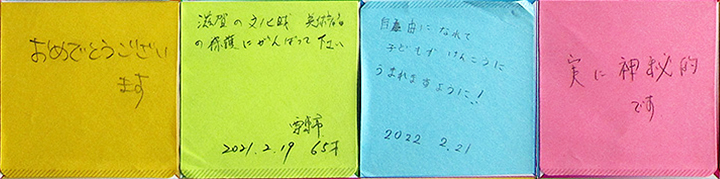 おめでとうござい
ます
滋賀の文化財 美術品
の保護にがんばって下さい
栗東市
2021.2.19 65才
自由になれて
子どもがけんこうに
うまれますように!
2022 2.21
実に神秘的
です